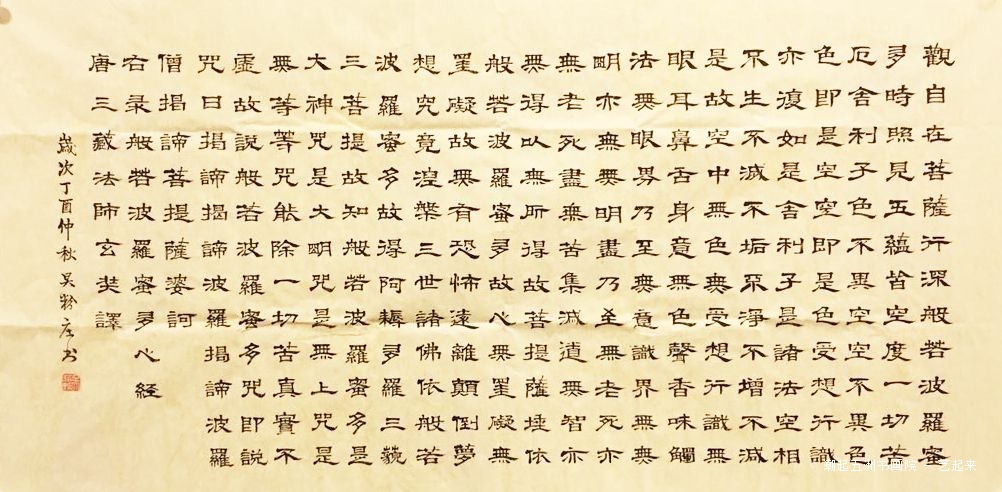 觀自在菩薩行深般若波羅蜜
多時照見五蘊皆空度一切苦
厄舍利子色不異空空不異色
色即是空空即是色受想行識
亦復如是舍利子是諸法空相
不生不滅不垢不淨不增不減
是故空中無色無受想行識無
眼耳鼻舌身意無色聲香味觸
法無眼界乃至無意識界無無
明亦無無明盡乃至無老死亦
無老死盡無苦集滅道無智亦
無得以無所得故菩提薩埵依
般若波羅蜜多故心無罣礙無
罣礙故無有恐怖遠離顛倒夢
想究竟涅槃三世諸佛依般若
波羅蜜多故得阿耨多羅三藐
三菩提故知般若波羅蜜多是
大神咒是大明咒是無上咒是
無等等咒能除一切苦真實不
虛故說般若波羅蜜多咒即說
咒曰揭諦揭諦波羅揭諦波羅
僧揭諦菩提薩婆訶
右录般若波羅蜜多心経
唐三藏法師玄奘譯
歲次丁酉仲秋吴书
书画院 艺起来